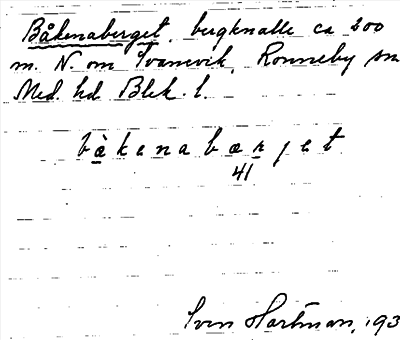 Båkenaberget, bergknalle ca 200
m. N. om Tvarnevik, Ronneby sn
Med. hd Blek. l.
bàkenabærjet
41
Sven Hartman, 193